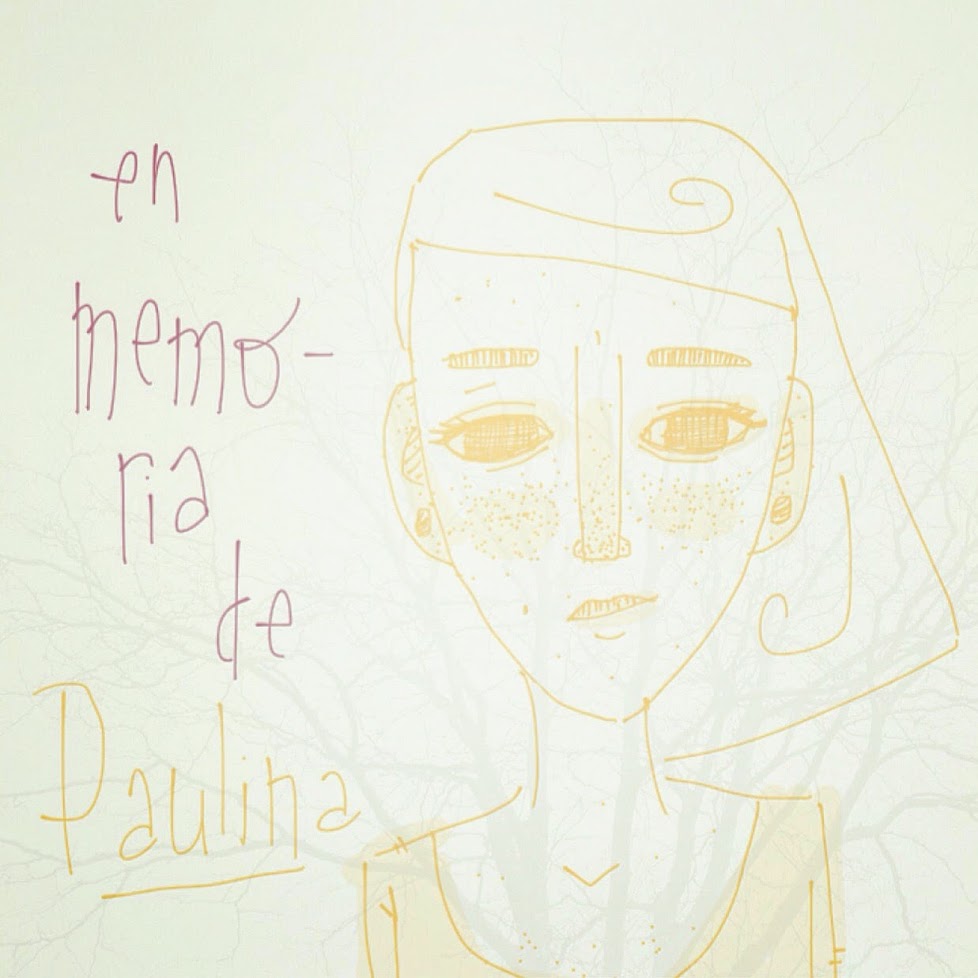 en
memo-
ria
de
Paulina